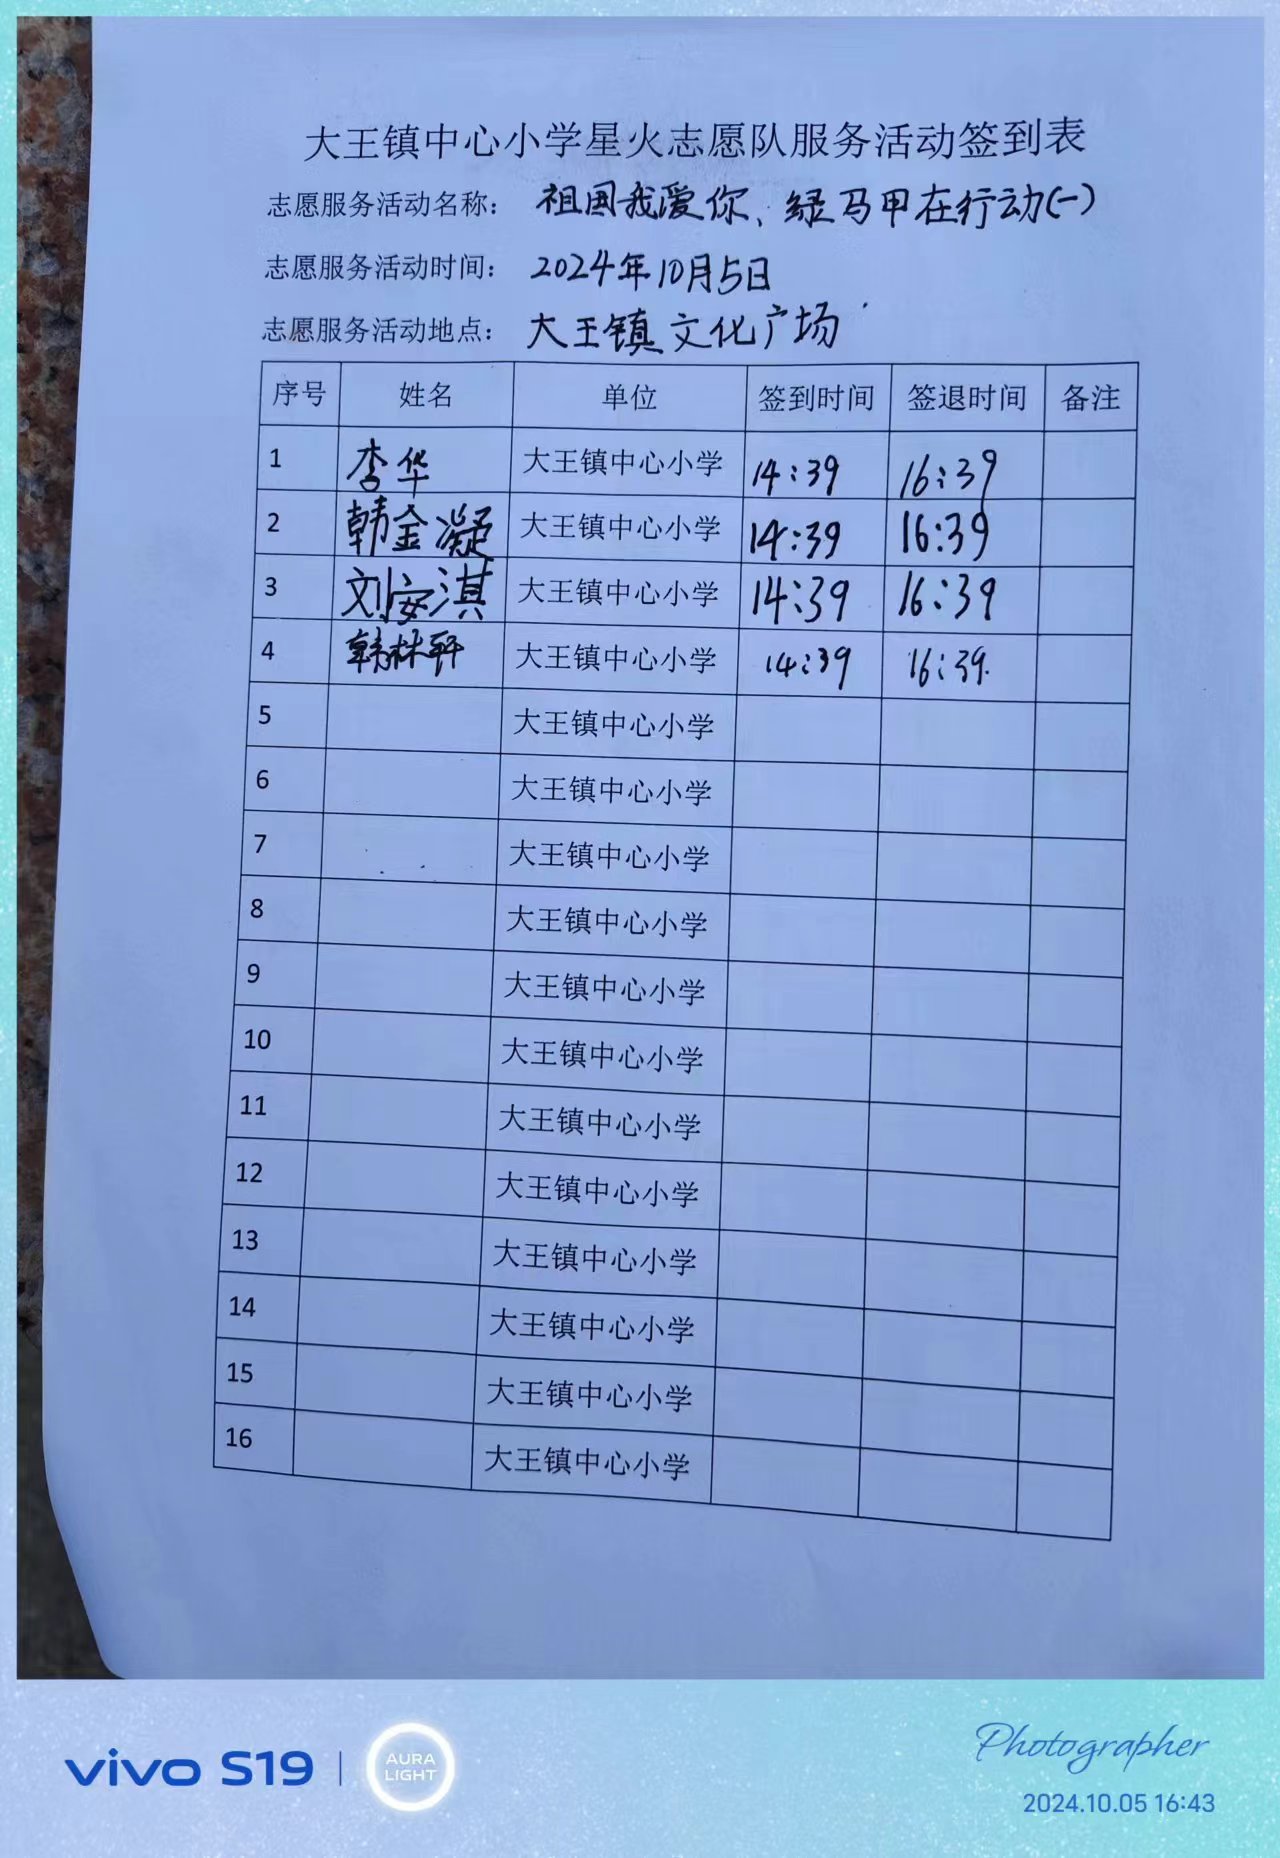 大王镇中心小学星火志愿队服务活动签到表
志愿服务活动名称： 祖国我爱你、绿马甲在行动(一)
志愿服务活动时间： 2024年10月5日
志愿服务活动地点： 大王镇文化广场
序号 姓名 单位 签到时间 签退时间 备注
1 李华 大王镇中心小学 14:39 16:39
2 韩金凝 大王镇中心小学 14:39 16:39
3 刘安淇 大王镇中心小学 14:39 16:39
4 韩林轩 大王镇中心小学 14:39 16:39.
5 大王镇中心小学
6 大王镇中心小学
7 大王镇中心小学
8 大王镇中心小学
9 大王镇中心小学
10 大王镇中心小学
11 大王镇中心小学
12 大王镇中心小学
13 大王镇中心小学
14 大王镇中心小学
15 大王镇中心小学
16 大王镇中心小学
vivo S19 | AURA LIGHT
Photographer
2024.10.05 16:43